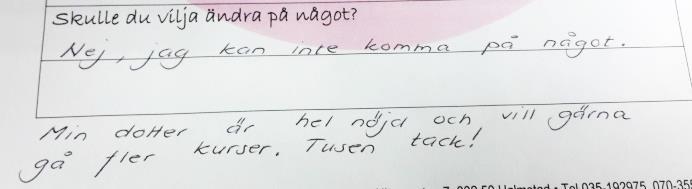 Skulle du vilja ändra på något?
Nej, jag kan inte komma på något.
Min dotter är hel nöjd och vill gärna
gå fler kurser. Tusen tack!
Halmstad • Tel 035-192975, 070-35